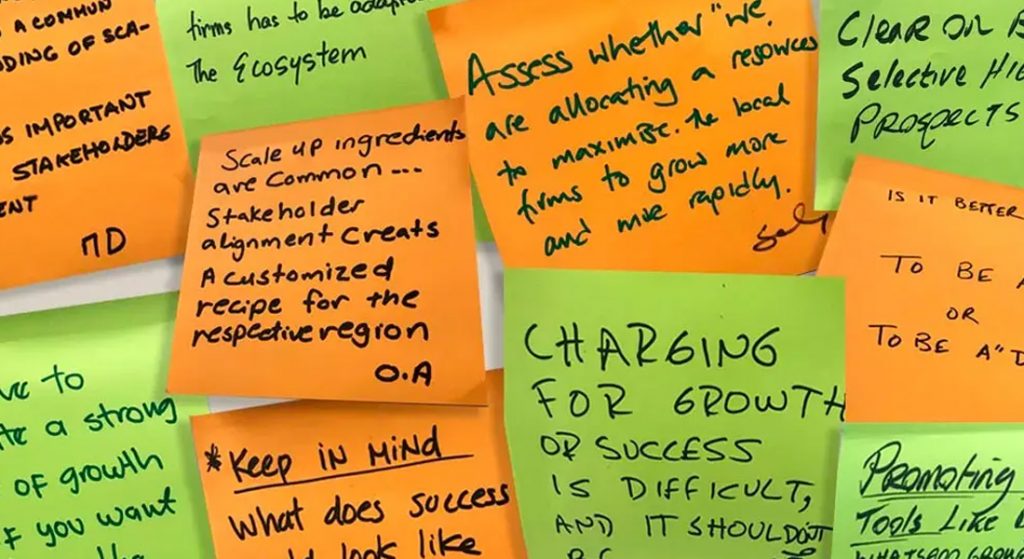 A COMMON
DING OF SCA-
IMPORTANT
STAKEHOLDERS
ENT
MD
firms has to be
The Ecosystem
Scale up ingredients
are common ...
Stakeholder
alignment creats
A customized
recipe for the
respective region
O.A
Assess whether "we
are allocating a resources
to maximize. the local
firms to grow more
and more rapidly.
Clear on
Selective
Prospects
IS IT BETTER
TO BE A
OR
TO BE A "D
ve to
a strong
of growth
f you want
the
* Keep in Mind
What does success
look like
CHARGING
FOR GROWTH
OR SUCCESS
IS DIFFICULT,
AND IT SHOULDN'T
BE
Promoting
Tools Like
WHATSAPP GROW